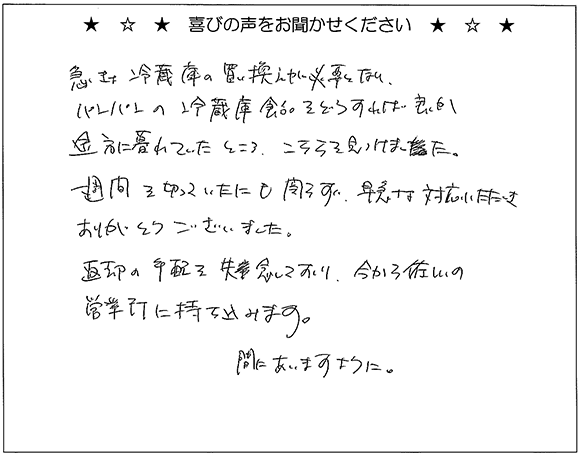 ★ ☆ ★ 喜びの声をお聞かせください ★ ☆ ★
急きょ冷蔵庫の買い換えが必要となり、
パンパンの冷蔵庫食品をどうすれば良いか
途方に暮れていたところ、こちらを見つけました。
一週間を切っていたにも関らず、早急な対応いただき
ありがとうございました。
返却の手配を失念しており、今から佐川の
営業所に持ち込みます。
間にあいますように。